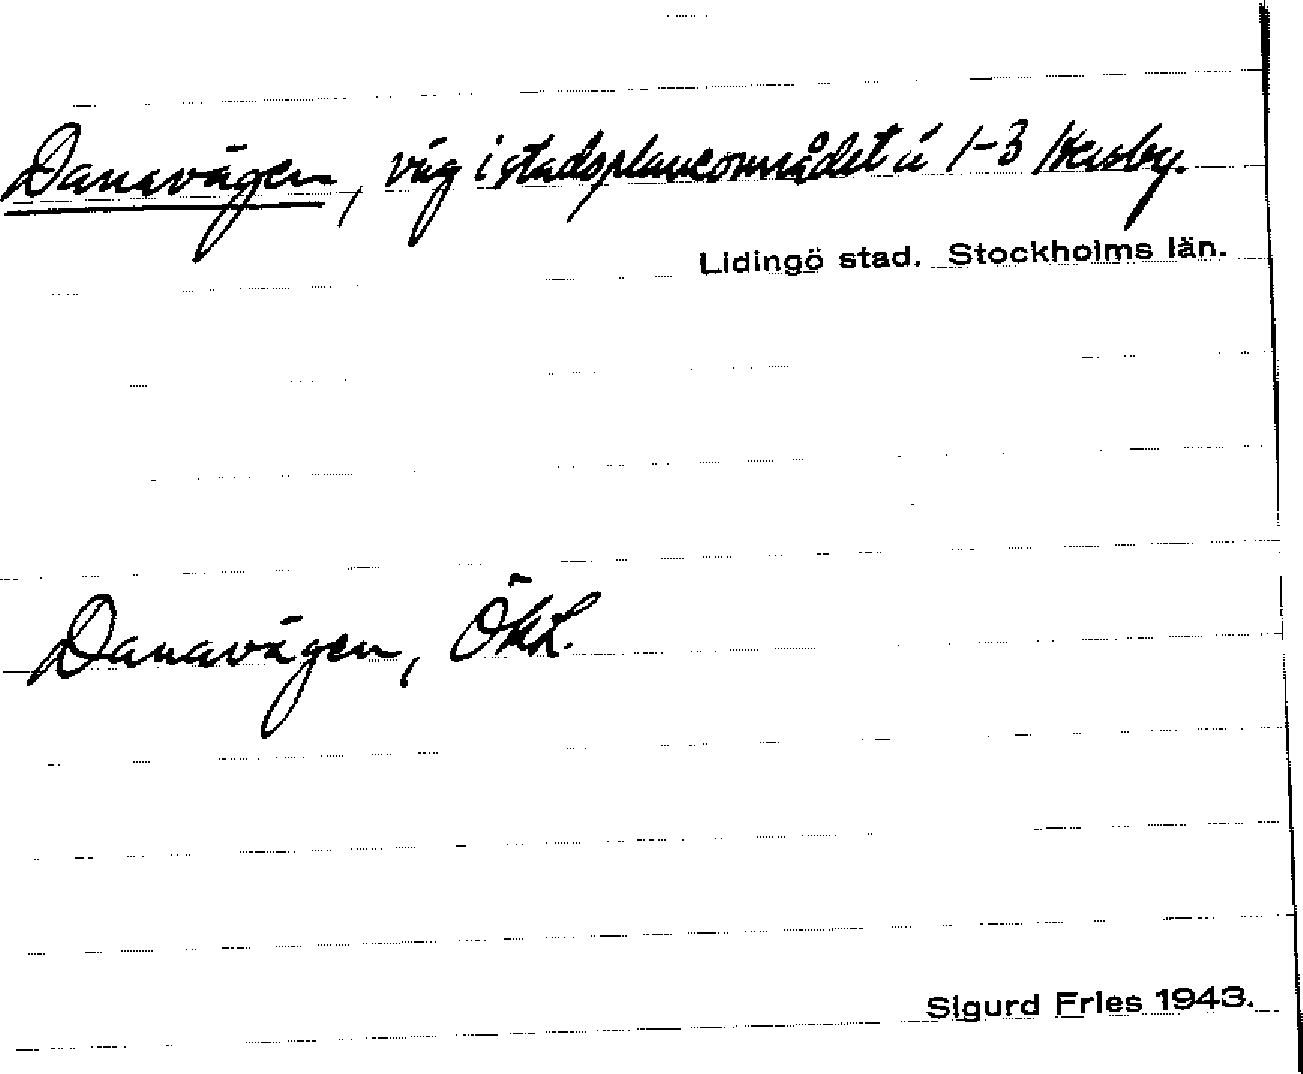 Danavägen, väg i stadsplaneområdet å 1-3 Käsby.
Lidingö stad. Stockholms län.
Danavägen, ÖKL.
Sigurd Fries 1943.